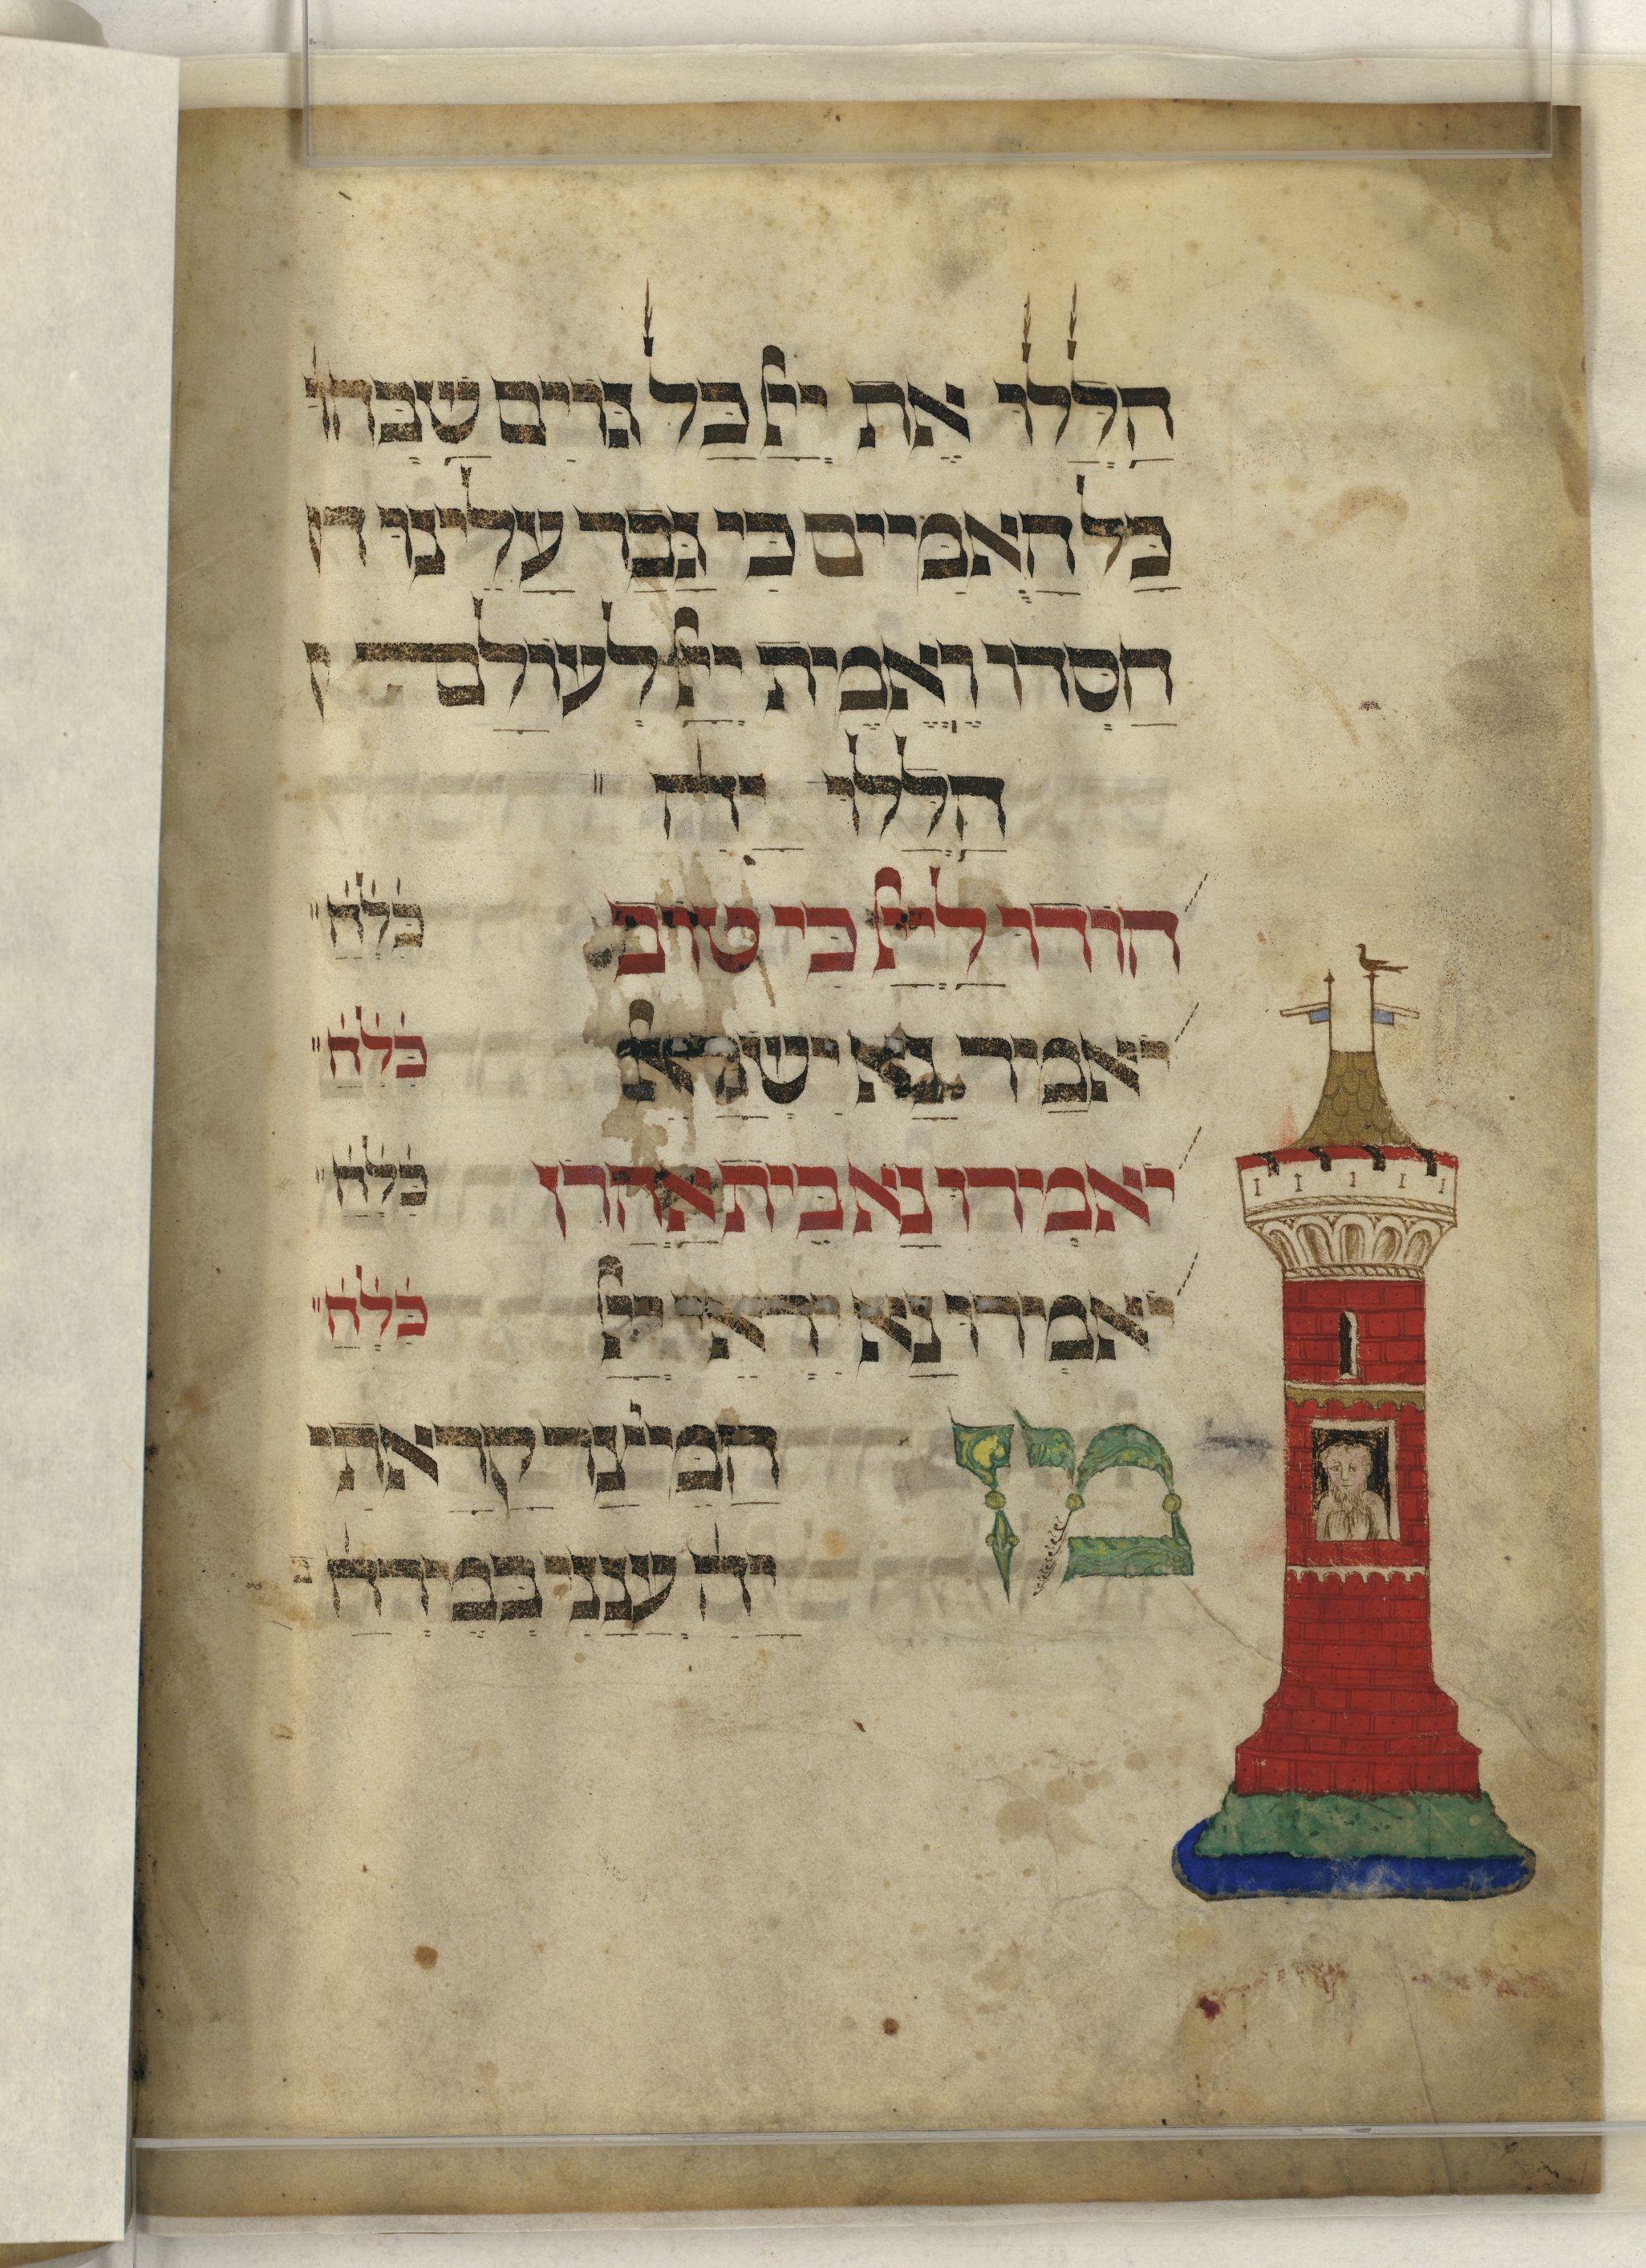 הַלְלוּ אֶת יְיָ כָּל גּוֹיִם שַׁבְּחוּ
כָּל הָאֻמִּים כִּי גָּבַר עָלֵינוּ
חַסְדּוֹ וֶאֱמֶת יְיָ לְעוֹלָם
הַלְלוּ יָהּ
הוֹדוּ לַיְיָ כִּי טוֹב כִּלְחַ
יֹאמַר נָא יִשְׂרָאֵל כִּלְחַ
יֹאמְרוּ נָא בֵית אַהֲרֹן כִּלְחַ
יֹאמְרוּ נָא יִרְאֵי יְיָ כִּלְחַ
מִן הַמֵּצַר קָרָאתִי
יָהּ עָנָנִי בַמֶּרְחָ